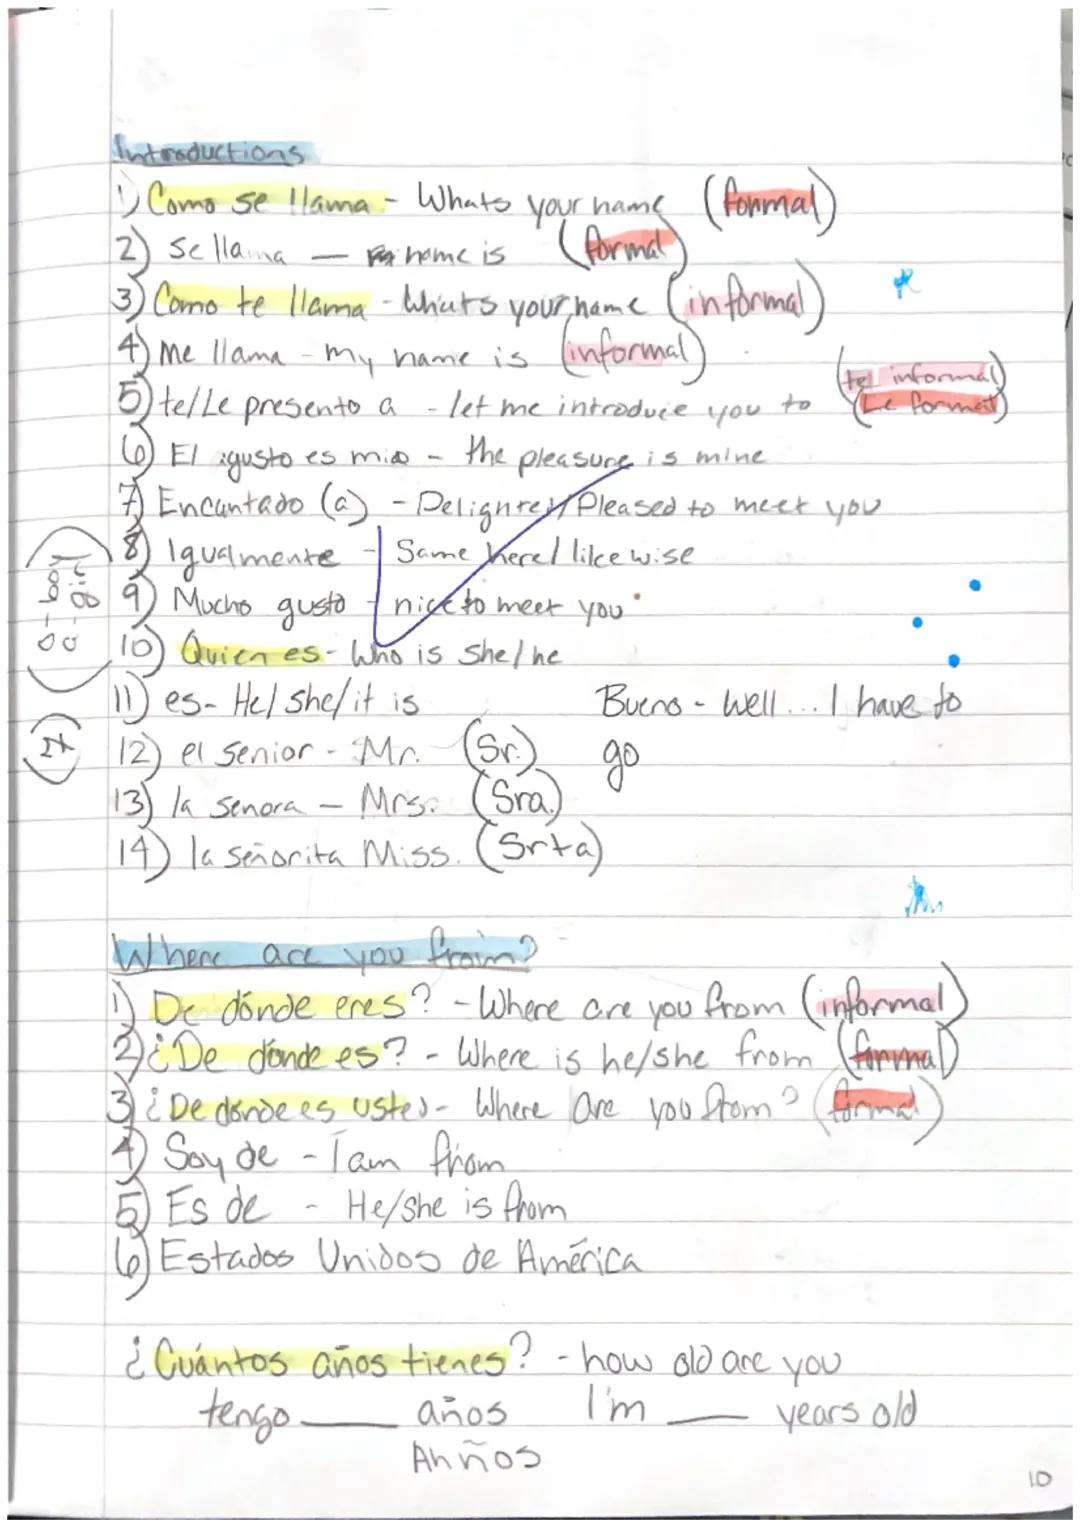 Introductions
1) Como se llama - Whats your name (formal)
2) se llama — name is (formal)
3) Como te llama - Whats your name (informal)
4) Me llama - my name is (informal)
(te informal)
5) te/Le presento a - let me introduce you to (Le formal)
6) El gusto es mio - the pleasure is mine
7) Encantado (a) - Delighted/Pleased to meet you
8) Igualmente - Same here/likewise
9) Mucho gusto - nice to meet you
10) Quien es - Who is she/he
11) es - He/she/it is Bueno - Well... I have to
12) el senior - Mr. (Sr.) go
13) la senora - Mrs. (Sra.)
14) la señorita Miss. (Srta)
Where are you from?
1) De dónde eres? - Where are you from (informal)
2) ¿De dónde es? - Where is he/she from (formal)
3) ¿De dónde es usted - Where are you from? (formal)
4) Soy de - I am from
5) Es de - He/she is from
6) Estados Unidos de América
¿Cuántos años tienes? - how old are you
tengo ____ años I'm ____ years old
Ahños
10